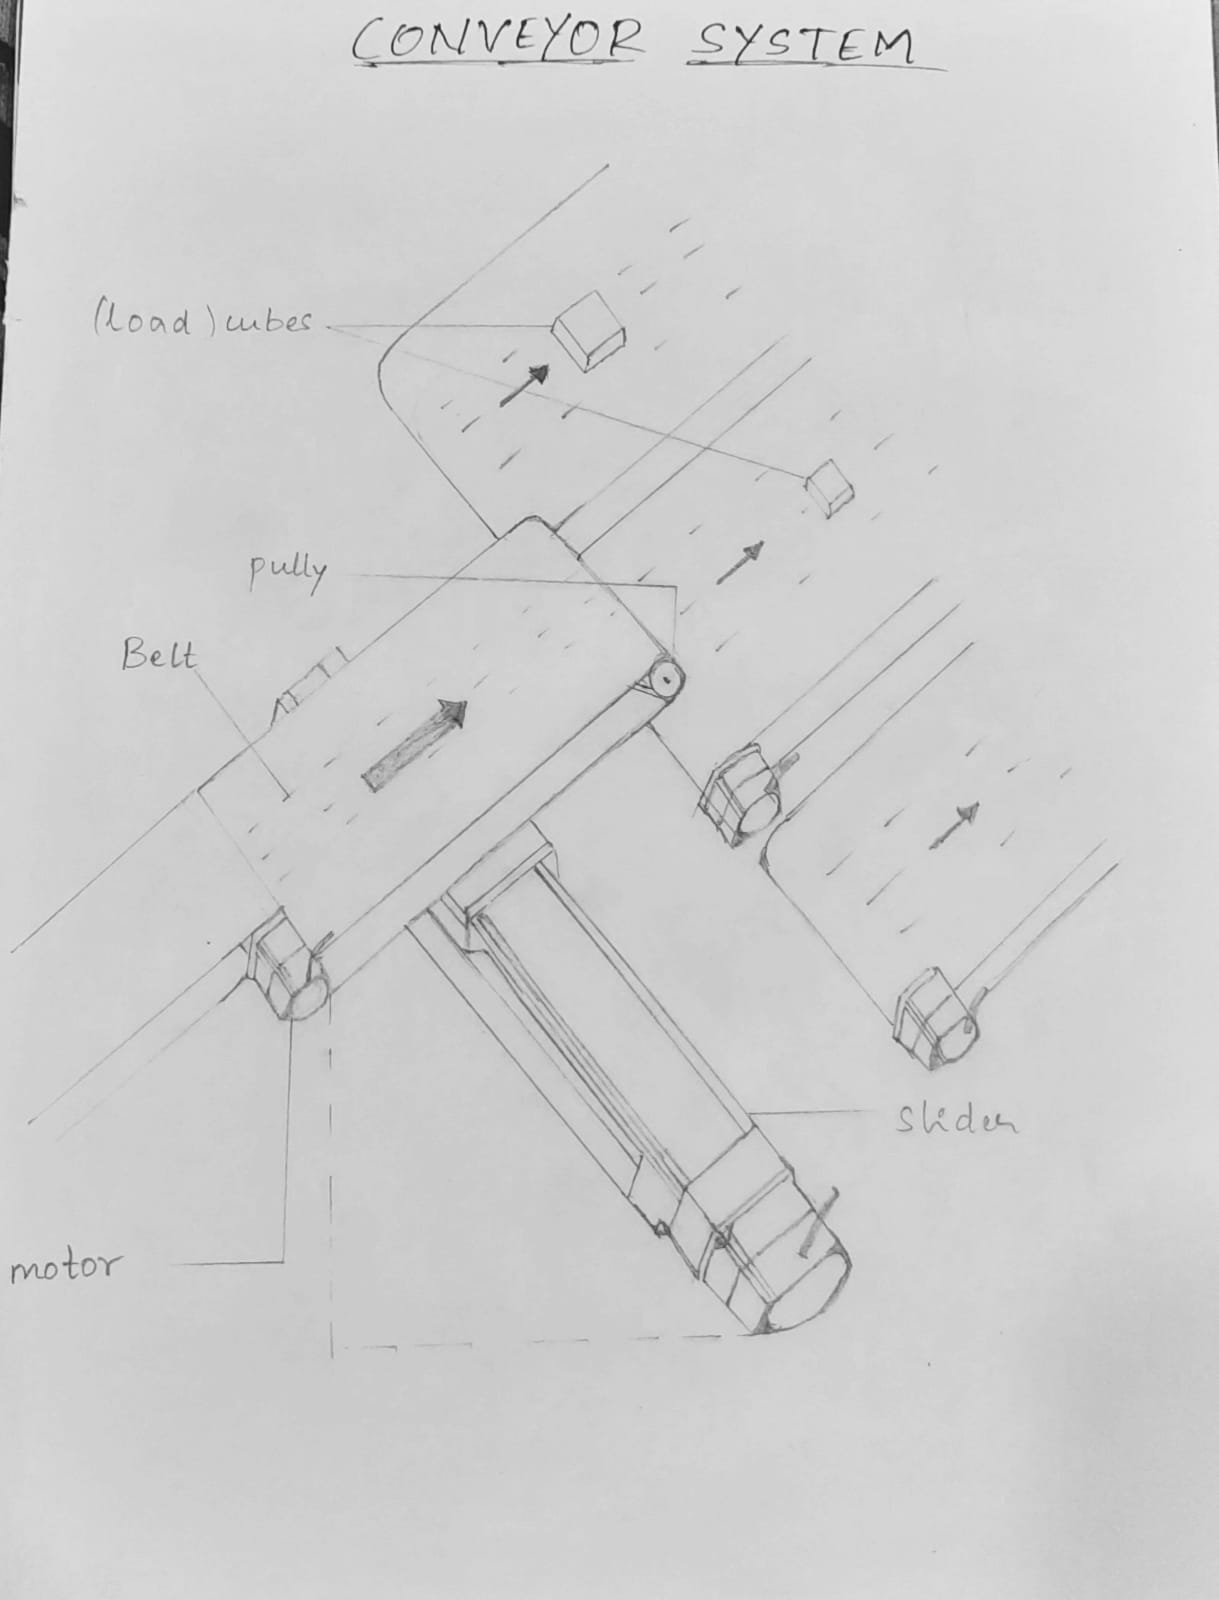 CONVEYOR SYSTEM
(load) cubes
pully
Belt
slider
motor